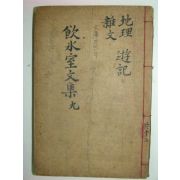 地理 遊記
雜文
飮氷室文集 九